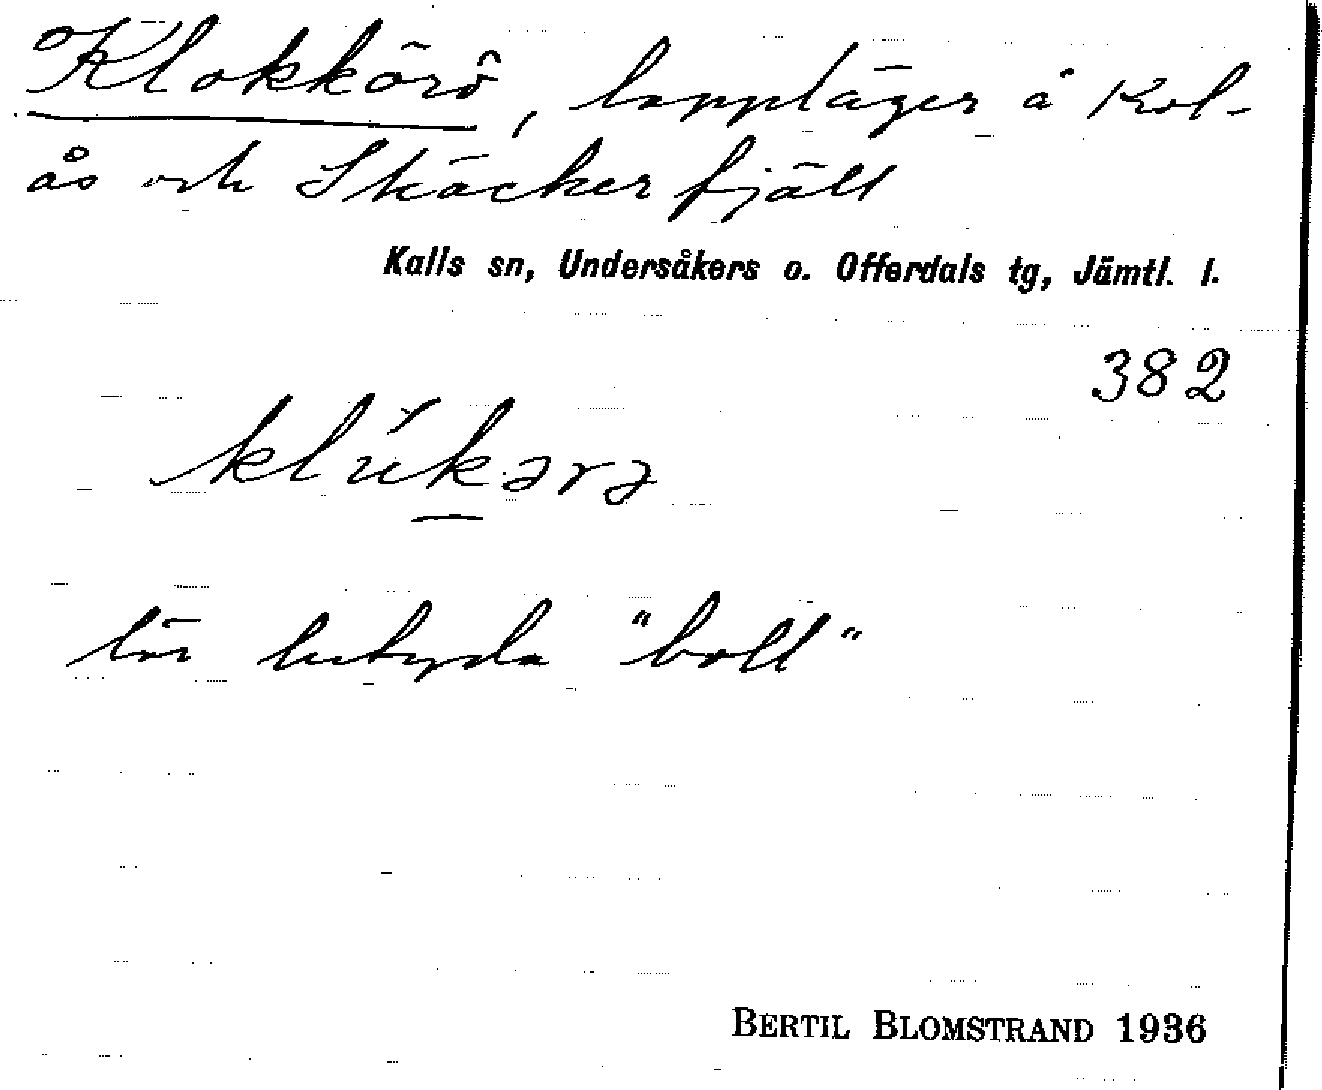 Klokkörö, lappläger å Kol-
ås och Skäckerfjäll
Kalls sn, Undersåkers o. Offerdals tg, Jämtl. l.
382
klúkərə
lär betyda "boll"
BERTIL BLOMSTRAND 1936